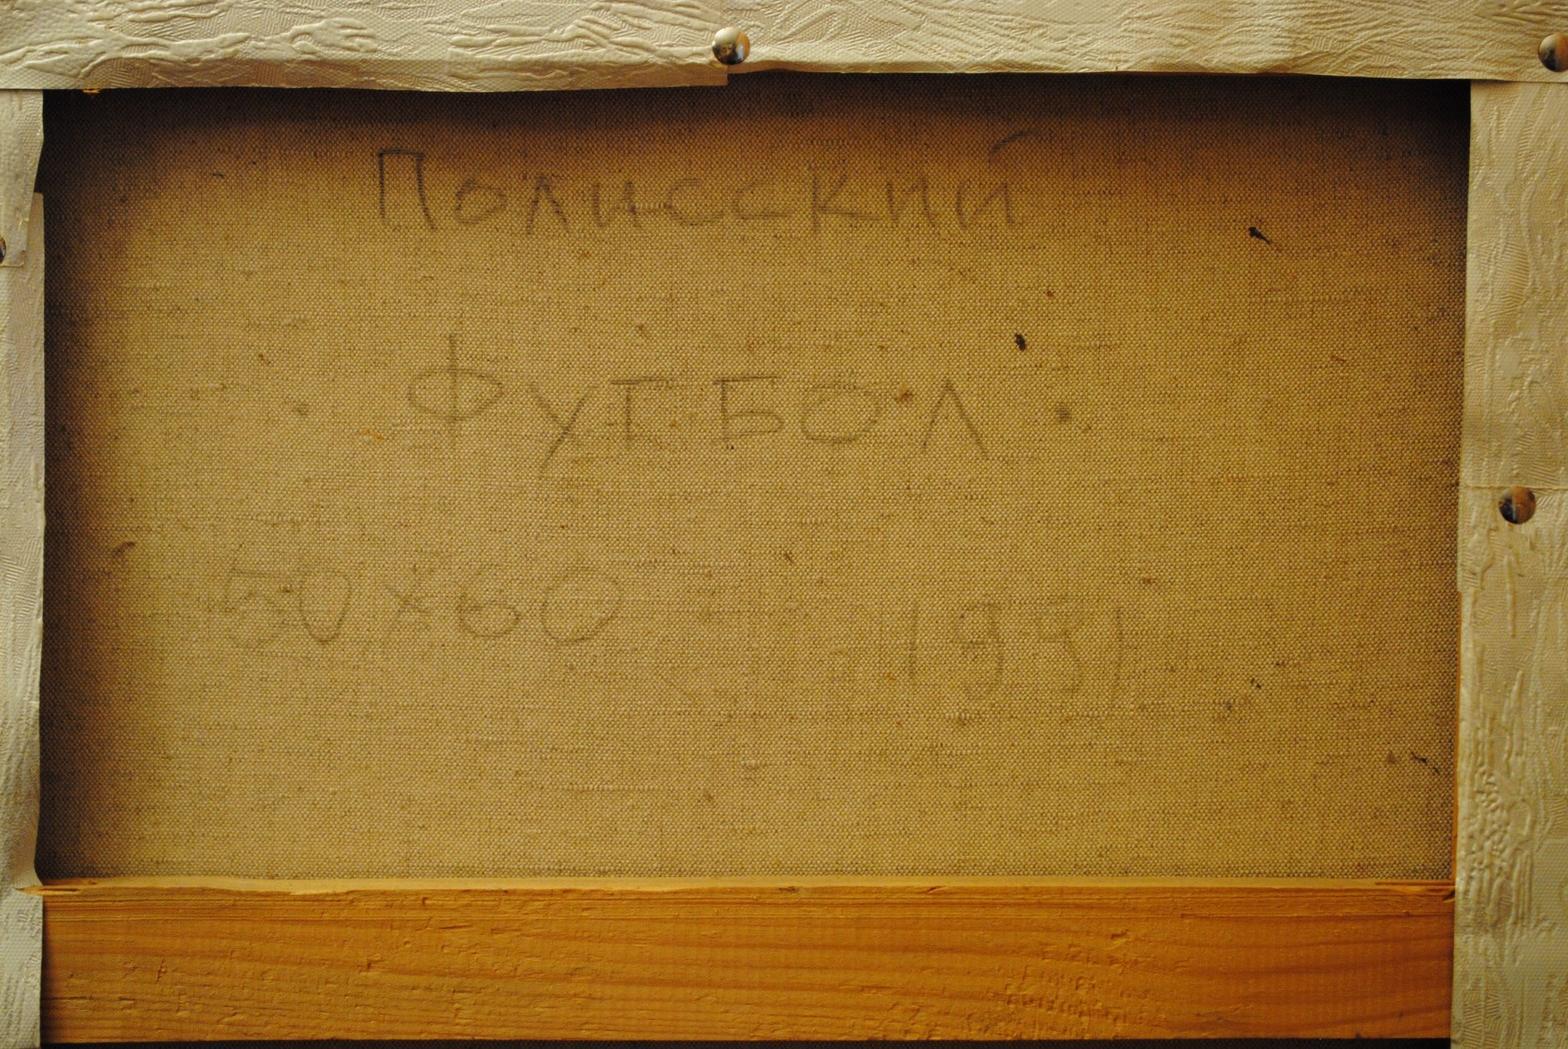 Полисский
ФУТБОЛ
50х60 1981